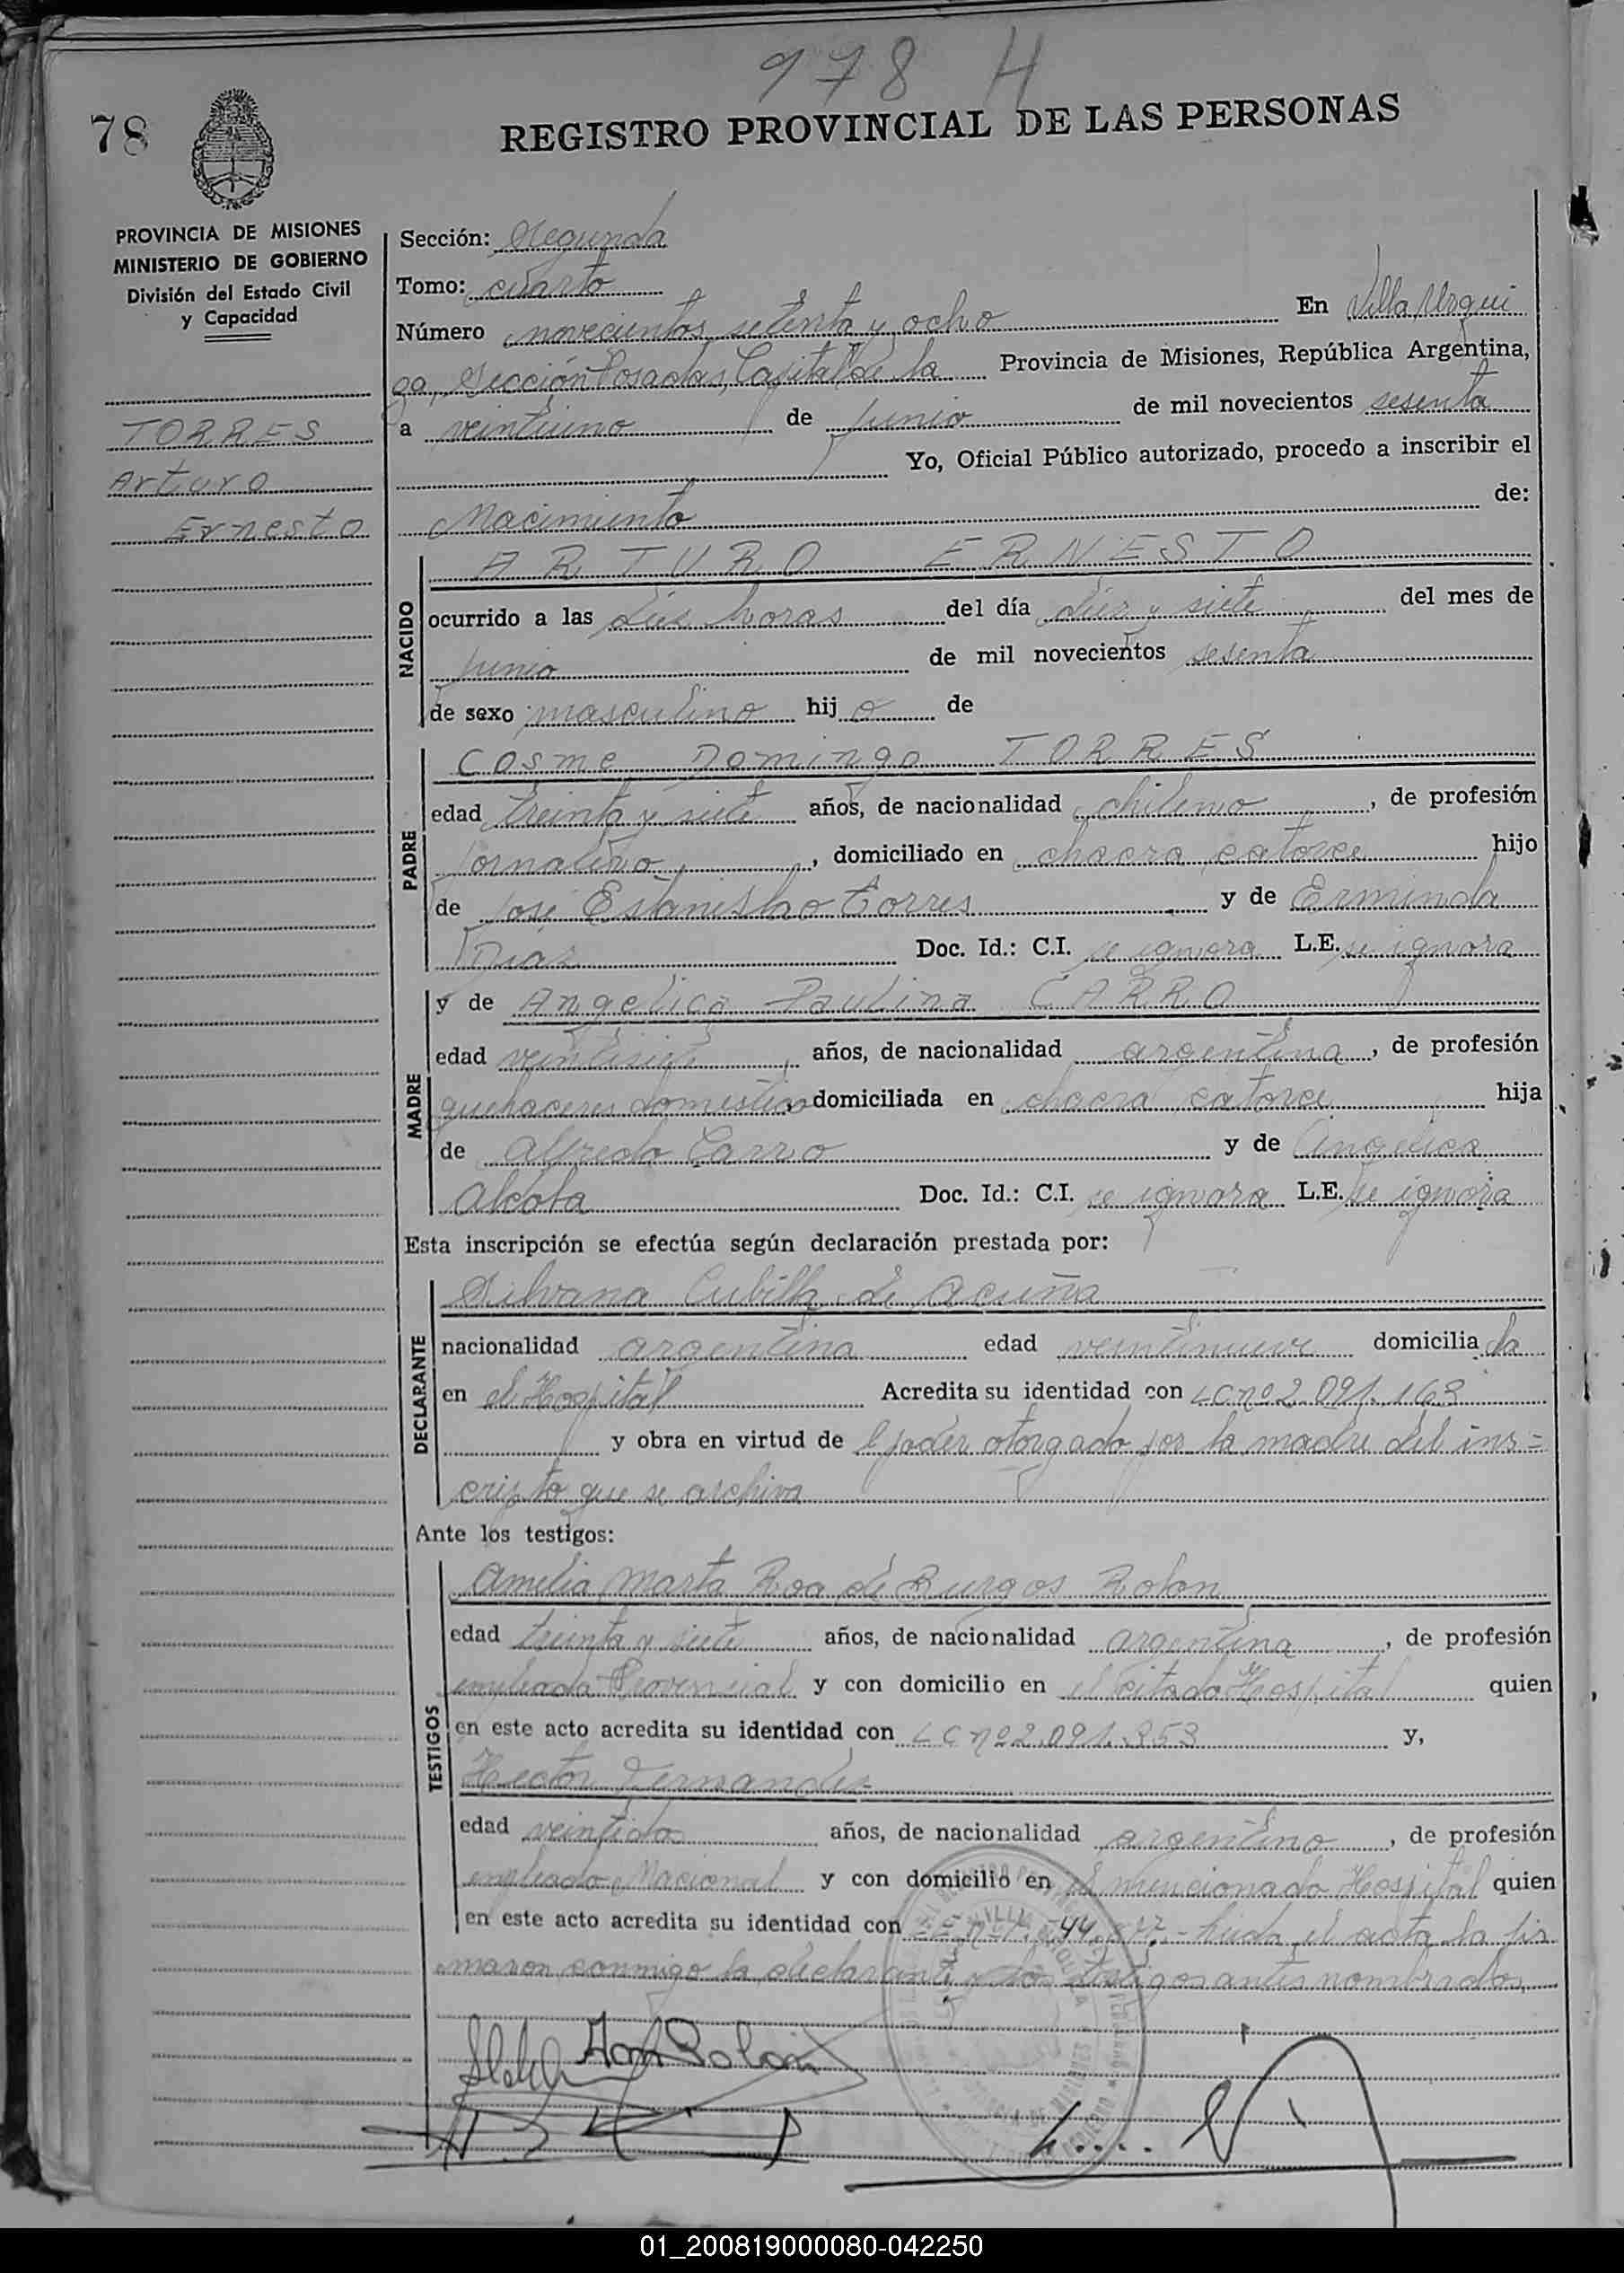 978 H
78
REGISTRO PROVINCIAL DE LAS PERSONAS
PROVINCIA DE MISIONES
MINISTERIO DE GOBIERNO
División del Estado Civil
y Capacidad
TORRES
Arturo
Ernesto
Sección: Segunda
Tomo: cuarto
Número novecientos setenta y ocho En Villa Urqui
za, Sección Posadas, Capital de la Provincia de Misiones, República Argentina,
a veintiuno de junio de mil novecientos sesenta
Yo, Oficial Público autorizado, procedo a inscribir el
Nacimiento de:
NACIDO
ARTURO ERNESTO
ocurrido a las diez horas del día diez y siete del mes de
junio de mil novecientos sesenta
de sexo masculino hij o de
PADRE
Cosme Domingo TORRES
edad treinta y siete años, de nacionalidad chileno, de profesión
jornalero, domiciliado en chacra catorce hijo
de José Estanislao Torres y de Erminda
Diaz Doc. Id.: C.I. se ignora L.E. se ignora
MADRE
y de Angelica Paulina CARRO
edad veintisiete años, de nacionalidad argentina, de profesión
quehaceres domesticos domiciliada en chacra catorce hija
de Alfredo Carro y de Angelica
Doc. Id.: C.I. se ignora L.E. se ignora
Esta inscripción se efectúa según declaración prestada por:
DECLARANTE
Silvana Cubilla de Acuña
nacionalidad argentina edad veintinueve domicilia da
en el Hospital Acredita su identidad con LC nº 2.091.163
y obra en virtud de l poder otorgado por la madre del ins=
cripto que se archiva
Ante los testigos:
TESTIGOS
Amelia Marta Roa de Burgos Rolon
edad treinta y siete años, de nacionalidad argentina, de profesión
empleada Provincial y con domicilio en el citado Hospital quien
en este acto acredita su identidad con LC nº 2.091.353 y,
Hector Fernandez
edad veintidos años, de nacionalidad argentino, de profesión
empleado Nacional y con domicilio en el mencionado Hospital quien
en este acto acredita su identidad con LE nº leida el acta la fir
maron conmigo la declarante y los testigos antes nombrados
01_200819000080-042250